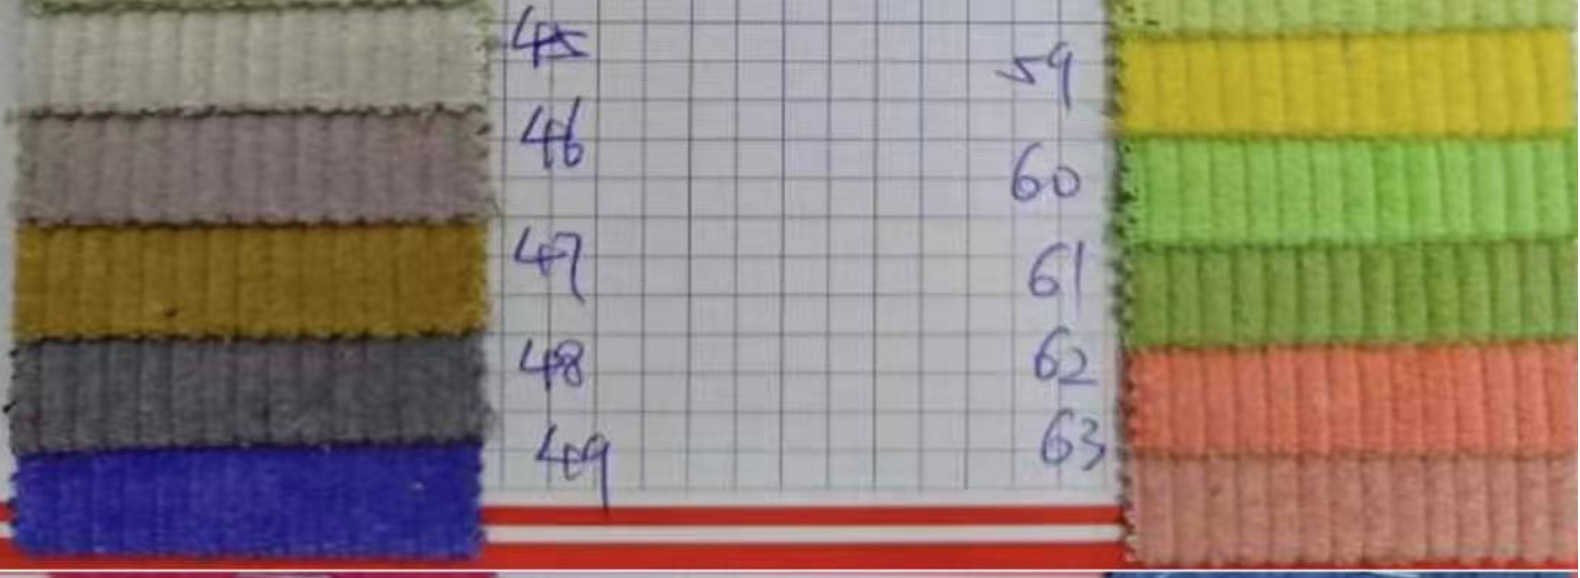 45
46
47
48
49
59
60
61
62
63